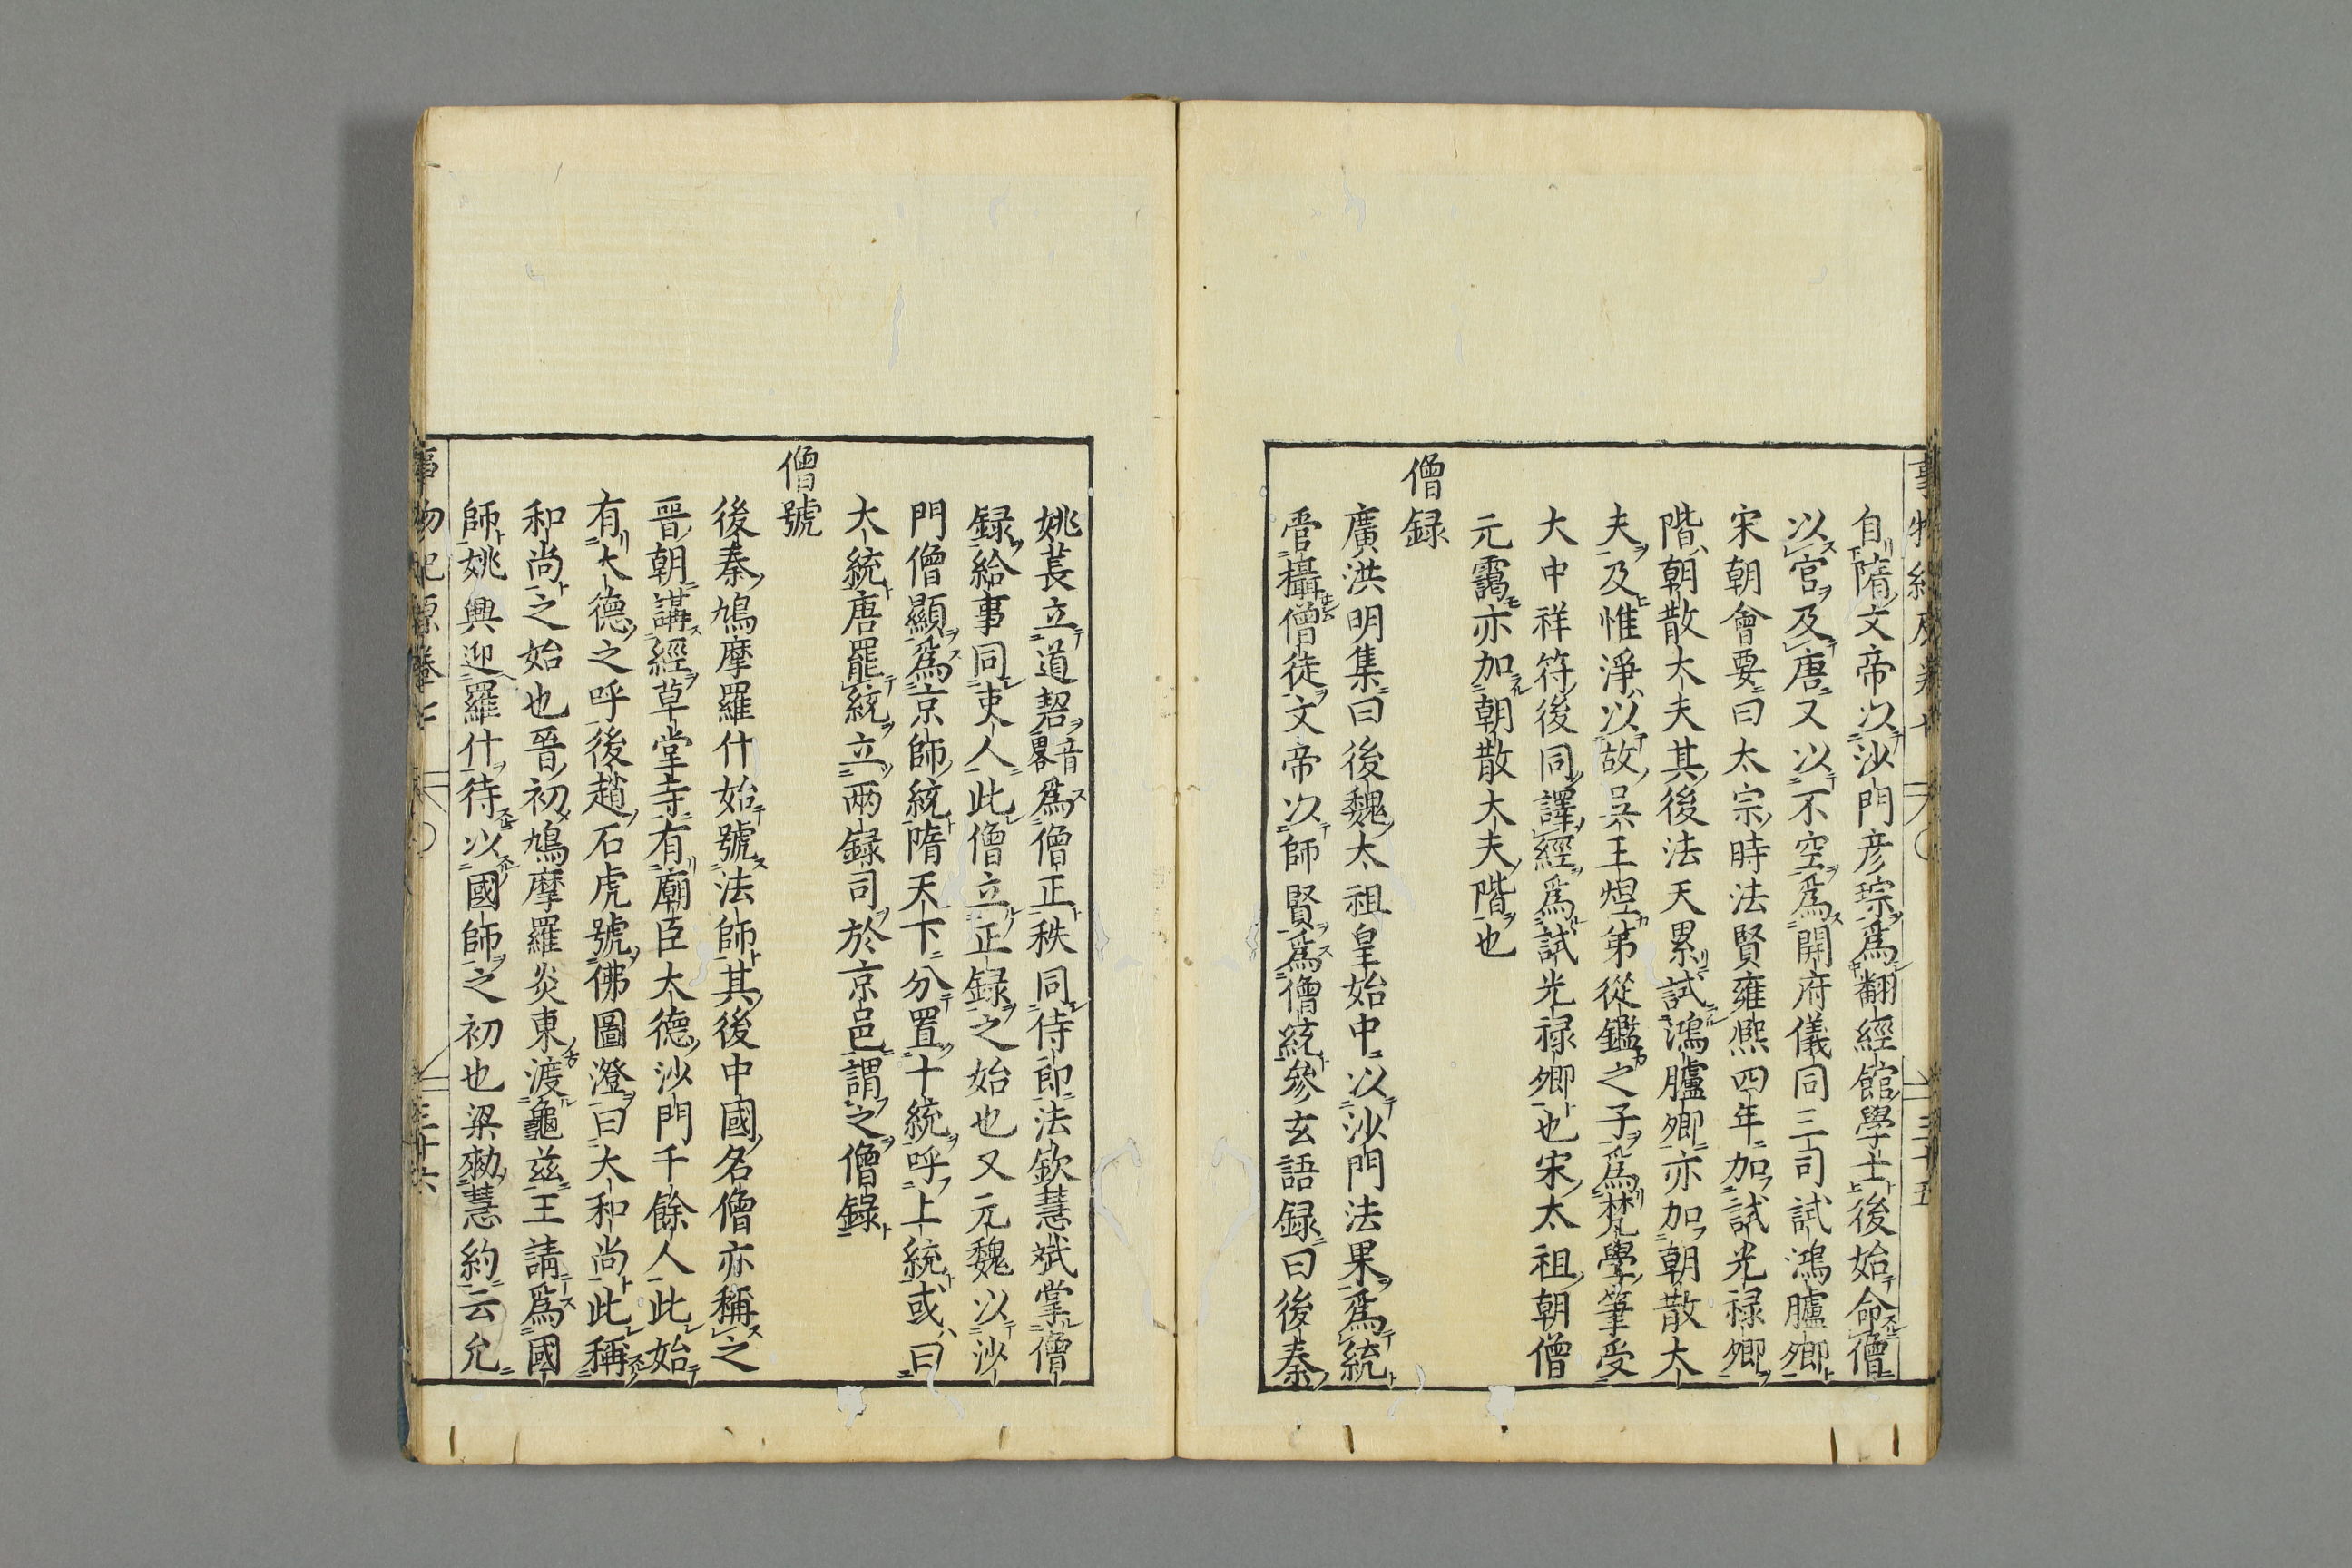 自隋文帝以沙門彦琮爲翻經館學士後始命僧
以官及唐又以不空爲開府儀同三司試鴻臚卿
宋朝會要曰太宗時法賢雍熙四年加試光禄卿
階朝散大夫其後法天累試鴻臚卿亦加朝散大
夫及惟淨以故吳王煜弟從鑑之子爲梵學筆受
大中祥符後同譯經爲試光禄卿也宋太祖朝僧
元靄亦加朝散大夫階也
僧録
廣洪明集曰後魏太祖皇始中以沙門法果爲統
管攝僧徒文帝以師賢爲僧統參玄語録曰後秦
姚萇立道䂮音畧爲僧正秩同侍郎法欽慧斌掌僧
録給事同吏人此僧立正録之始也又元魏以沙
門僧顯爲京師統隋天下分置十統呼上統或曰
大統唐罷統立兩録司於京邑謂之僧録
僧號
後秦鳩摩羅什始號法師其後中國名僧亦稱之
晋朝講經草堂寺有廟臣大德沙門千餘人此始
有大德之呼後趙石虎號佛圖澄曰大和尚此稱
和尚之始也晋初鳩摩羅炎東渡龜茲王請爲國
師姚興迎羅什待以國師之初也梁勑慧約云允